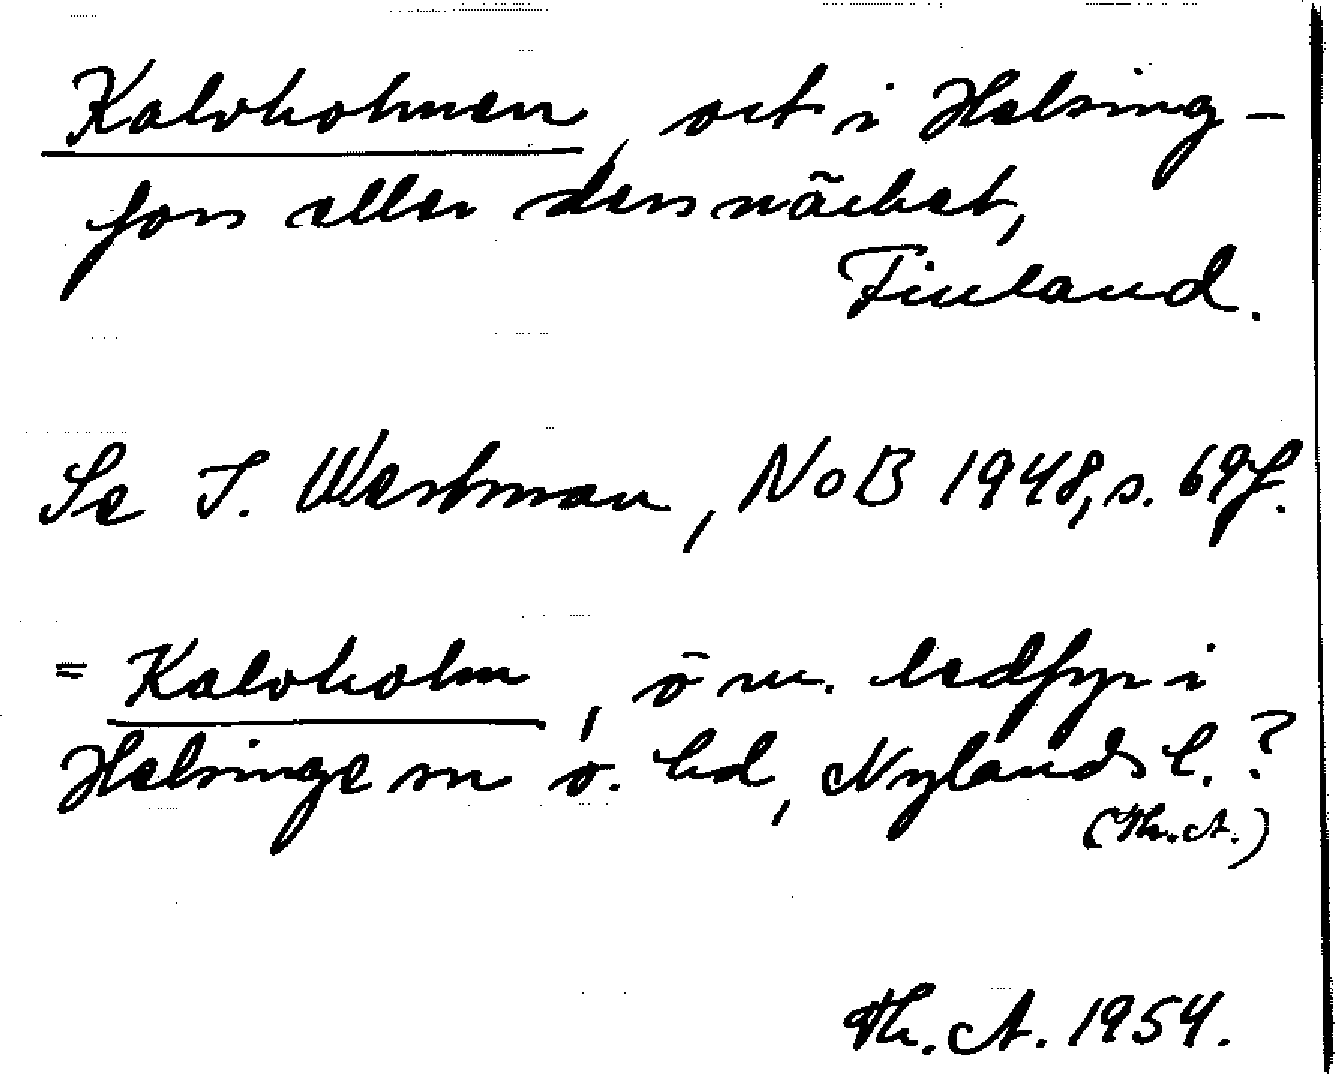 Kalvholmen, ort i Helsing-
fors eller dess närhet,
Finland.
Se I. Westman, NoB 1948, s. 69f.
= Kalvholm, ö m. ledfyr i
Helsinge sn ö. hd, Nylands l.?
(Th. A.)
Th. A. 1954.